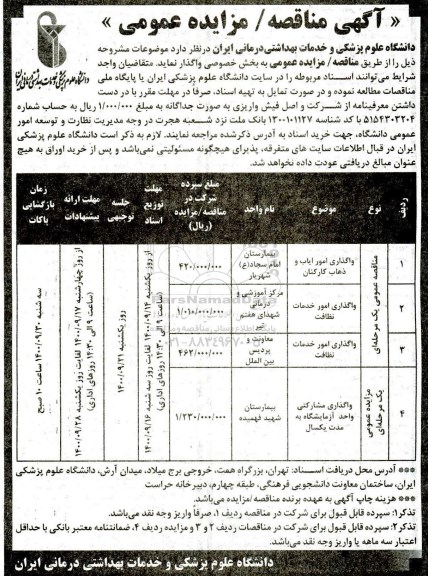 « آگهی مناقصه/ مزایده عمومی »
دانشگاه علوم پزشکی و خدمات بهداشتی درمانی ایران
دانشگاه علوم پزشکی و خدمات بهداشتی‌درمانی ایران درنظر دارد موضوعات مشروحه
ذیل را از طریق مناقصه/ مزایده عمومی به بخش خصوصی واگذار نماید. متقاضیان واجد
شرایط می‌توانند اسناد مربوطه را در سایت دانشگاه علوم پزشکی ایران یا پایگاه ملی
مناقصات مطالعه نموده و در صورت تمایل به تهیه اسناد، صرفاً در مهلت مقرر با در دست
داشتن معرفینامه از شرکت و اصل فیش واریزی به صورت جداگانه به مبلغ ۱/۰۰۰/۰۰۰ ریال به حساب شماره
۵۱۵۴۳۰۳۲۰۴ با کد شناسه ۱۳۰۰۱۰۱۱۲۷ بانک ملت نزد شعبه هجرت در وجه مدیریت نظارت و توسعه امور
عمومی دانشگاه، جهت خرید اسناد به آدرس ذکرشده مراجعه نمایند. لازم به ذکر است دانشگاه علوم پزشکی
ایران در قبال اطلاعات سایت های متفرقه، پذیرای هیچگونه مسئولیتی نمی‌باشد و پس از خرید اوراق به هیچ
عنوان مبالغ دریافتی عودت داده نخواهد شد.
ردیف
نوع
موضوع
نام واحد
مبلغ سپرده شرکت در مناقصه/مزایده (ریال)
مهلت توزیع اسناد
جلسه توجیهی
مهلت ارائه پیشنهادات
زمان بازگشایی پاکات
۱
مناقصه عمومی یک مرحله‌ای
واگذاری امور ایاب و ذهاب کارکنان
بیمارستان امام سجاد(ع) شهریار
۴۲۰/۰۰۰/۰۰۰
۲
واگذاری امور خدمات نظافت
مرکز آموزشی و درمانی شهدای هفتم تیر
۱/۰۱۰/۰۰۰/۰۰۰
۳
واگذاری امور خدمات نظافت
معاونت و پردیس بین الملل
۴۶۲/۰۰۰/۰۰۰
۴
مزایده عمومی یک مرحله‌ای
واگذاری مشارکتی واحد آزمایشگاه به مدت یکسال
بیمارستان شهید فهمیده
۱/۲۳۰/۰۰۰/۰۰۰
از روز یکشنبه ۱۴۰۰/۰۹/۱۴ لغایت روز سه شنبه ۱۴۰۰/۰۹/۱۶
(ساعت ۹ الی ۱۴:۳۰ روزهای اداری)
روز یکشنبه ۱۴۰۰/۰۹/۲۱
از روز چهارشنبه ۱۴۰۰/۰۹/۱۷ لغایت روز یکشنبه ۱۴۰۰/۰۹/۲۸
(ساعت ۹ الی ۱۴:۳۰ روزهای اداری)
سه شنبه ۱۴۰۰/۰۹/۳۰ ساعت ۱۰ صبح
۰۲۱-۸۸۳۴۹۶۷۰
*** آدرس محل دریافت اسناد: تهران، بزرگراه همت، خروجی برج میلاد، میدان آرش، دانشگاه علوم پزشکی
ایران، ساختمان معاونت دانشجویی فرهنگی، طبقه چهارم، دبیرخانه حراست
*** هزینه چاپ آگهی به عهده برنده مناقصه /مزایده می‌باشد.
تذکر۱: سپرده قابل قبول برای شرکت در مناقصه ردیف ۱، صرفاً واریز وجه نقد می‌باشد.
تذکر۲: سپرده قابل قبول برای شرکت در مناقصات ردیف ۲ و ۳ و مزایده ردیف ۴، ضمانتنامه معتبر بانکی با حداقل
اعتبار سه ماهه یا واریز وجه نقد می‌باشد.
دانشگاه علوم پزشکی و خدمات بهداشتی درمانی ایران